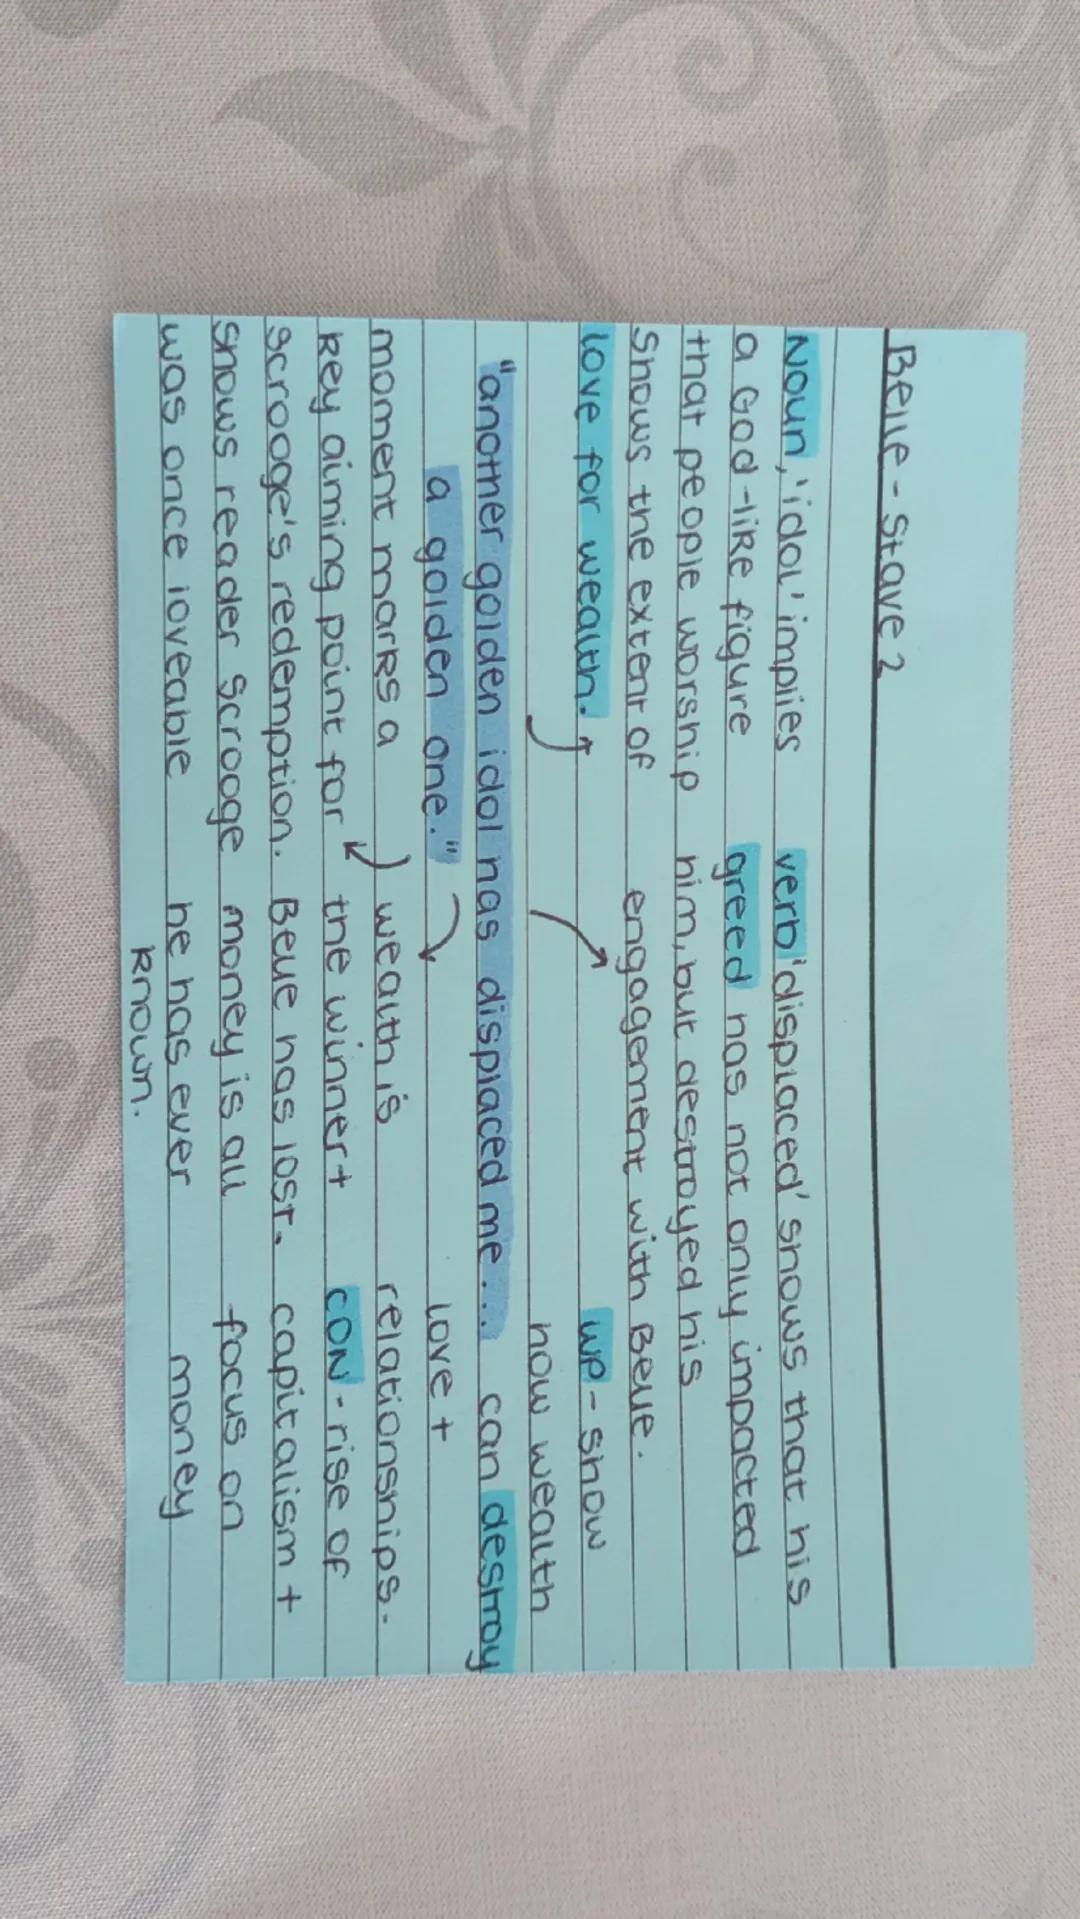 Belle - Stave 2
Noun, 'idol' implies
a God-like figure
that people worship
shows the extent of
love for wealth.
verb 'displaced' shows that his
greed has not only impacted
him, but destroyed his
engagement with Belle.
"another golden idol has displaced me...
a golden one."
moment marks a
key aiming point for
scrooge's redemption.
shows reader Scrooge
was once loveable
wealth is
the winner +
Belle has lost.
money is all
he has ever
known.
WP - show
how wealth
can destroy
love +
relationships.
CON - rise of
capitalism +
focus on
money